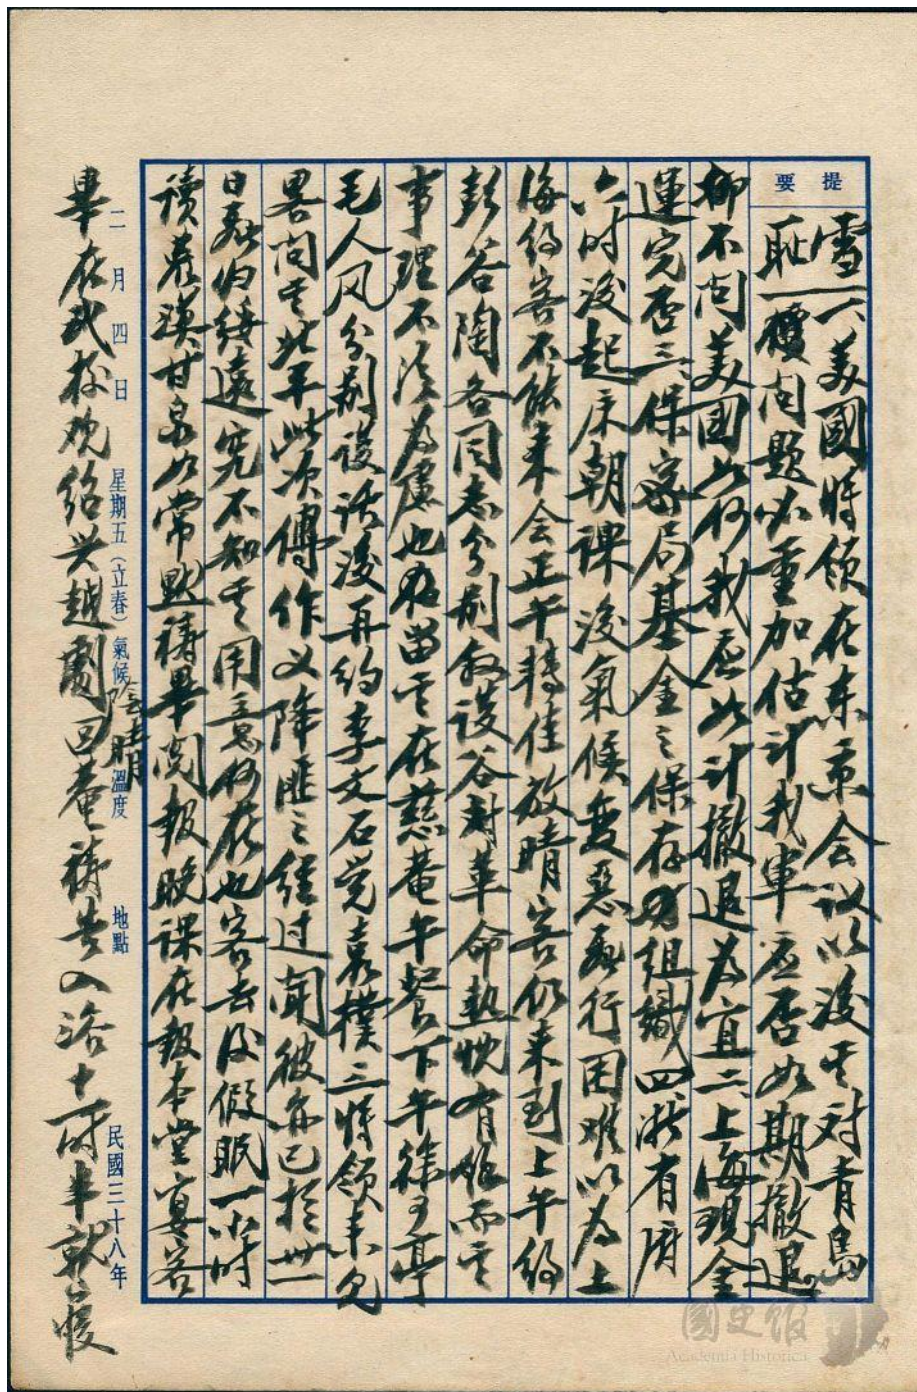 提要
雪一、美國將領在東京会议以後其对青島
恥一權问題必重加估计我軍应否如期撤退
抑不问美國如何我应如计撤退為宜二、上海現金
運完否三、保密局基金之保存及組織四、浙省府
六时後起床朝課後氣候变惡飛行困难以為上
海约客不能来会正午轉佳放晴客仍来到上午约
彭谷陶各同志分别敘谈谷对革命热忱有餘而其
事理不清為慮也故留其在慈菴午餐下午徐可亭
毛人凤分别谈话後再约李文石觉袁樸三將領来见
畧问其北平此次傅作义降匪之經过聞彼亦已於卅一
日飛归綏遠究不知其用意何在也客去後假眠一小时
讀荒漠甘泉如常默禱畢阅報晚課在报本堂宴客
二月四日 星期五（立春） 氣候 陰晴 溫度 地點 民國三十八年
畢在武校观绍兴越劇回菴禱告入浴十时半就寢
國史館
Academia Historica